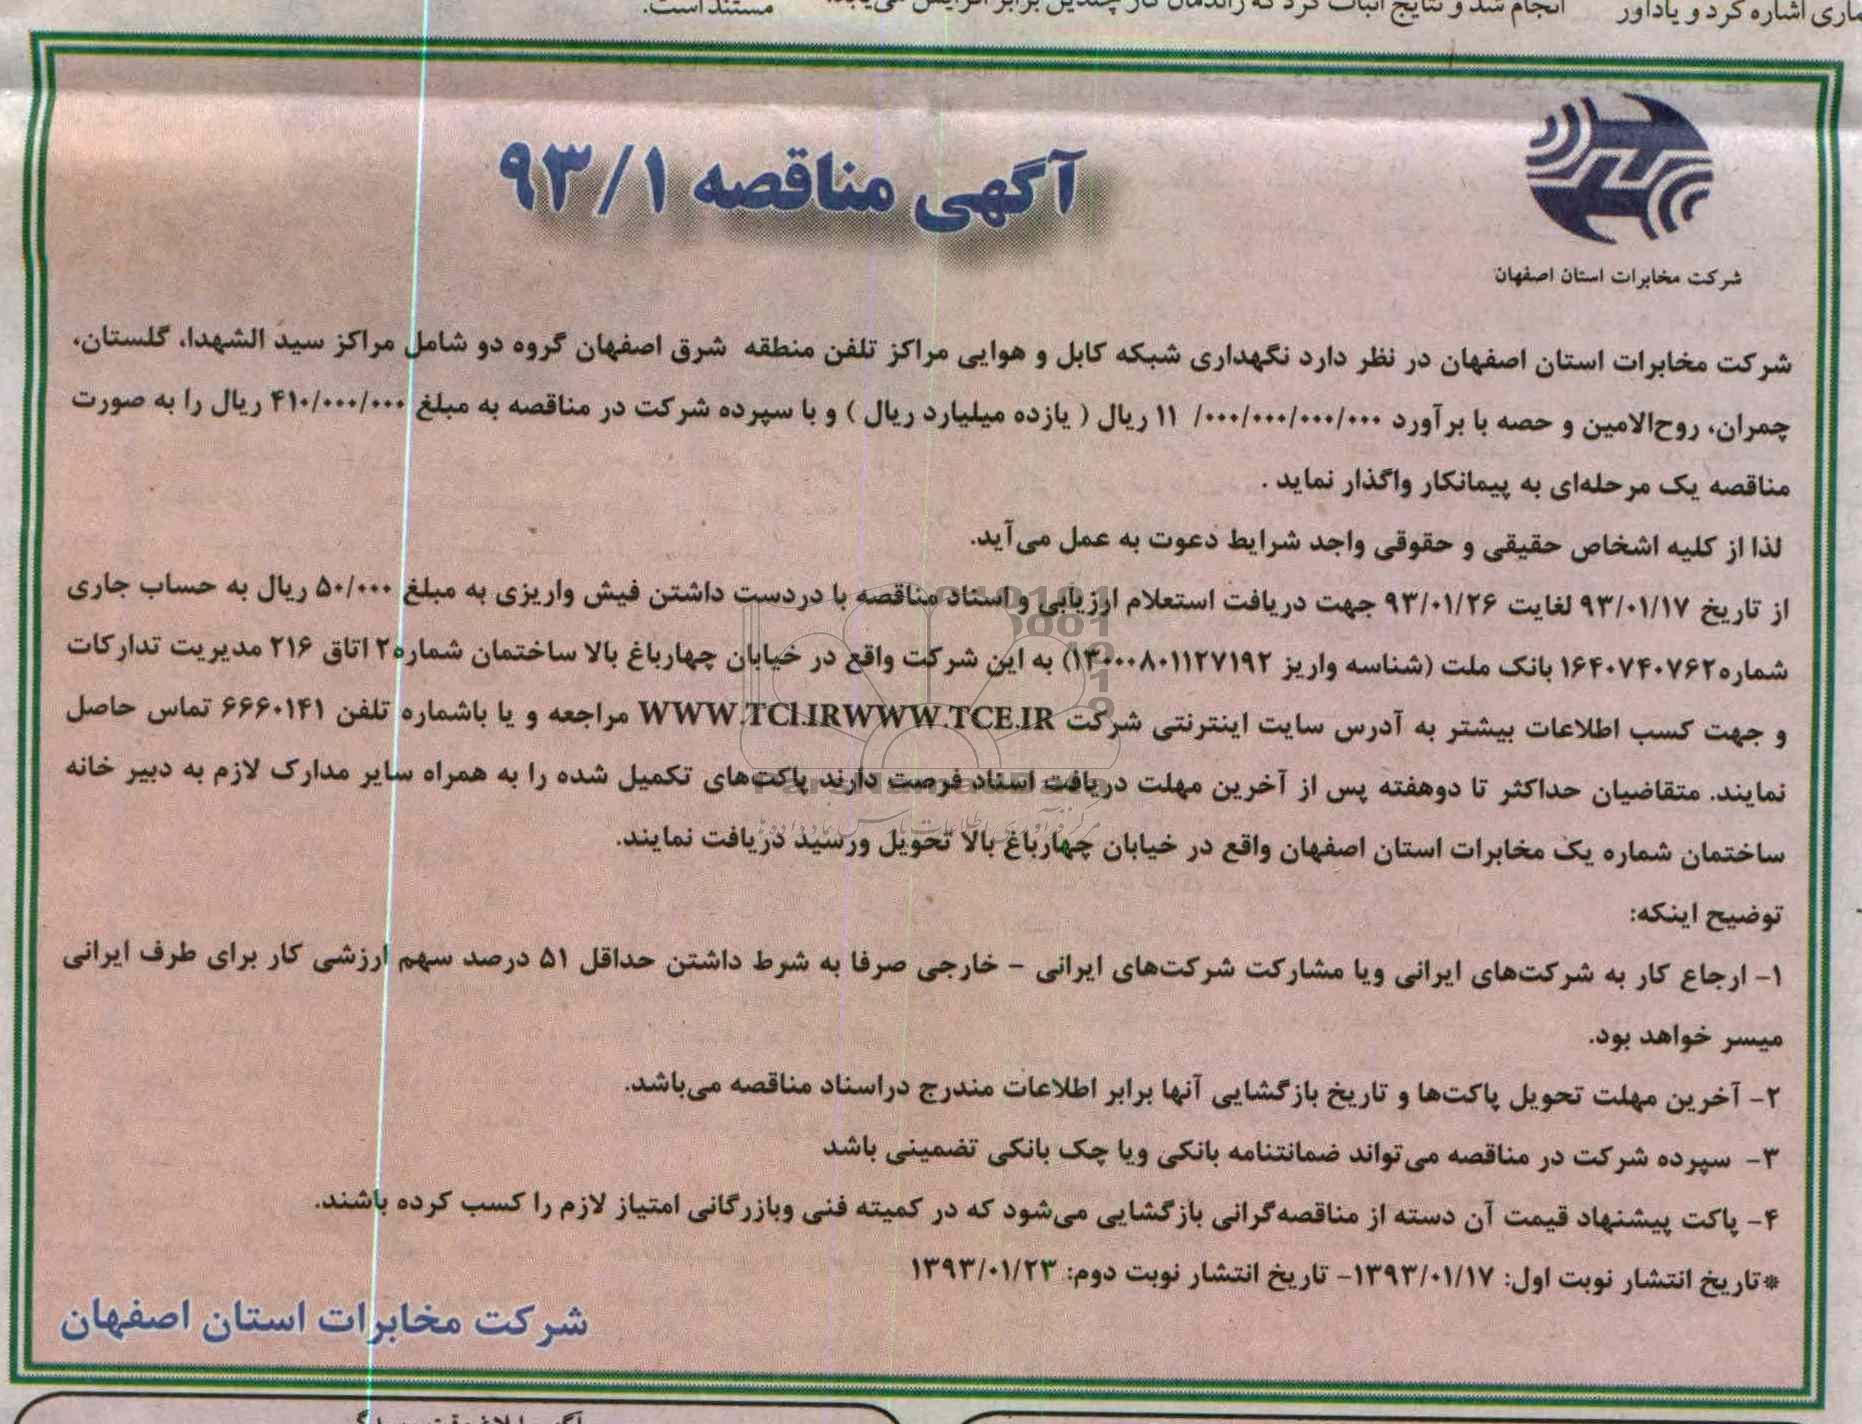 ماری اشاره کرد و یادآور انجام شد و نتایج اثبات کرد که راندمان کار چندین برابر افزایش می‌یابد. مستند است.
آگهی مناقصه ۹۳/۱
شرکت مخابرات استان اصفهان
شرکت مخابرات استان اصفهان در نظر دارد نگهداری شبکه کابل و هوایی مراکز تلفن منطقه شرق اصفهان گروه دو شامل مراکز سید الشهدا، گلستان،
چمران، روح‌الامین و حصه با برآورد ۱۱ /۰۰۰/۰۰۰/۰۰۰/۰۰۰ ریال ( یازده میلیارد ریال ) و با سپرده شرکت در مناقصه به مبلغ ۴۱۰/۰۰۰/۰۰۰ ریال را به صورت
مناقصه یک مرحله‌ای به پیمانکار واگذار نماید .
لذا از کلیه اشخاص حقیقی و حقوقی واجد شرایط دعوت به عمل می‌آید.
از تاریخ ۹۳/۰۱/۱۷ لغایت ۹۳/۰۱/۲۶ جهت دریافت استعلام ارزیابی و اسناد مناقصه با دردست داشتن فیش واریزی به مبلغ ۵۰/۰۰۰ ریال به حساب جاری
شماره۱۶۴۰۷۴۰۷۶۲ بانک ملت (شناسه واریز ۱۳۰۰۰۸۰۱۱۲۷۱۹۲) به این شرکت واقع در خیابان چهارباغ بالا ساختمان شماره۲ اتاق ۲۱۶ مدیریت تدارکات
و جهت کسب اطلاعات بیشتر به آدرس سایت اینترنتی شرکت WWW.TCI.IRWWW.TCE.IR مراجعه و یا باشماره تلفن ۶۶۶۰۱۴۱ تماس حاصل
نمایند. متقاضیان حداکثر تا دوهفته پس از آخرین مهلت دریافت اسناد فرصت دارند پاکت‌های تکمیل شده را به همراه سایر مدارک لازم به دبیر خانه
ساختمان شماره یک مخابرات استان اصفهان واقع در خیابان چهارباغ بالا تحویل ورسید دریافت نمایند.
توضیح اینکه:
۱- ارجاع کار به شرکت‌های ایرانی ویا مشارکت شرکت‌های ایرانی - خارجی صرفا به شرط داشتن حداقل ۵۱ درصد سهم ارزشی کار برای طرف ایرانی
میسر خواهد بود.
۲- آخرین مهلت تحویل پاکت‌ها و تاریخ بازگشایی آنها برابر اطلاعات مندرج دراسناد مناقصه می‌باشد.
۳- سپرده شرکت در مناقصه می‌تواند ضمانتنامه بانکی ویا چک بانکی تضمینی باشد
۴- پاکت پیشنهاد قیمت آن دسته از مناقصه‌گرانی بازگشایی می‌شود که در کمیته فنی وبازرگانی امتیاز لازم را کسب کرده باشند.
*تاریخ انتشار نوبت اول: ۱۳۹۳/۰۱/۱۷- تاریخ انتشار نوبت دوم: ۱۳۹۳/۰۱/۲۳
شرکت مخابرات استان اصفهان